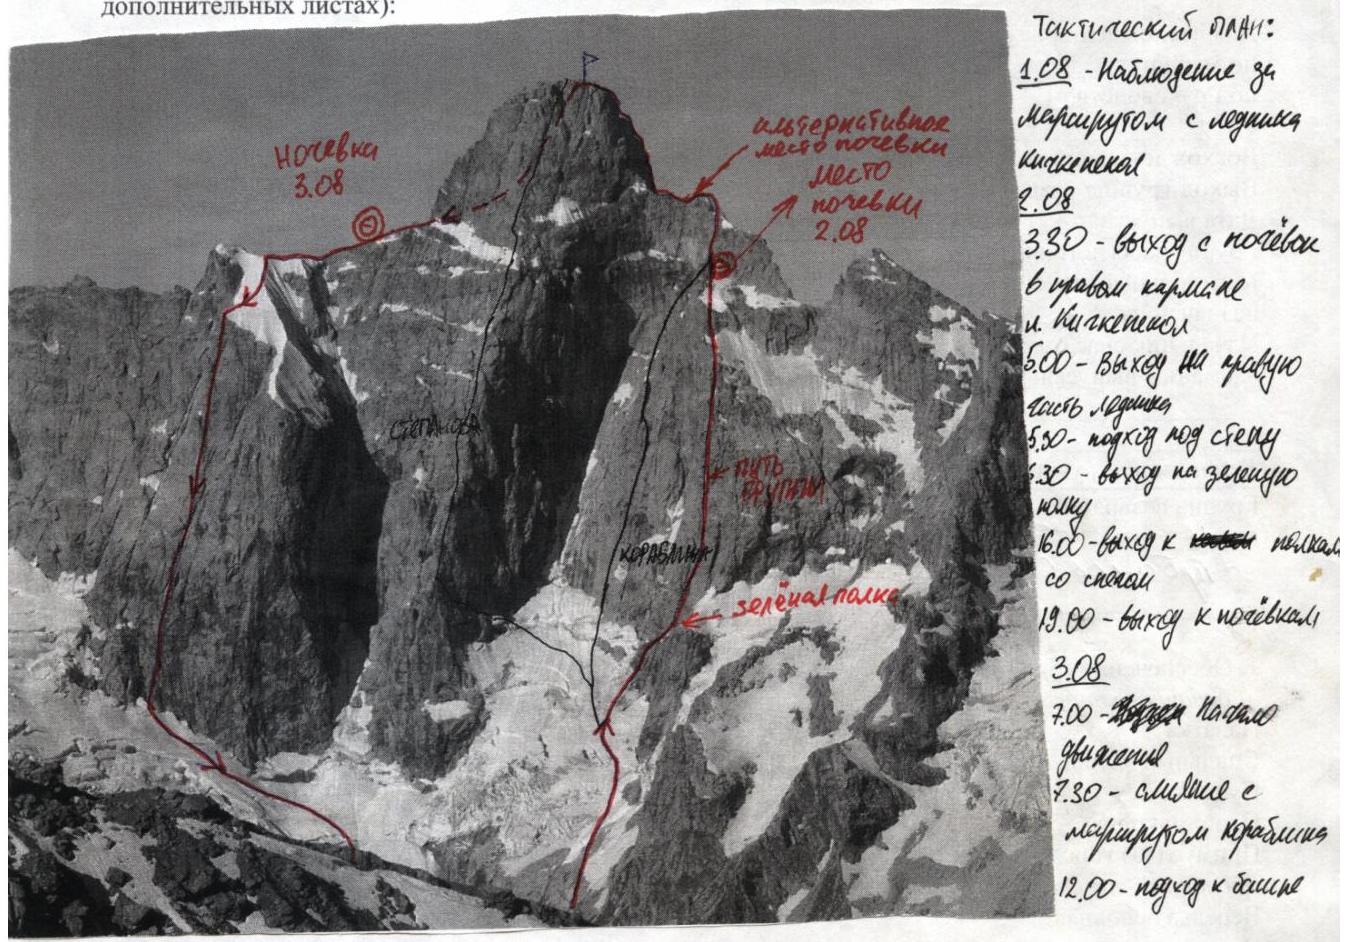 дополнительных листах):
НОЧЕВКА
3.08
альтернативное
место ночевки
МЕСТО
ночевки
2.08
СТЕПАНОВА
КОРАБЛИНА
ПУТЬ
ГРУППЫ
зелёная полка
Тактический ПЛАН:
1.08 - Наблюдение за
маршрутом с ледника
Кичкенекол
2.08
3.30 - выход с ночёвок
в правом кармане
л. Кичкенекол
5.00 - Выход на правую
часть ледника
5.30 - подход под стену
6.30 - выход на зеленую
полку
16.00 - выход к полкам
со снегом
19.00 - выход к ночёвкам
3.08
7.00 - Начало
движения
7.30 - слияние с
маршрутом Кораблина
12.00 - подход к башне